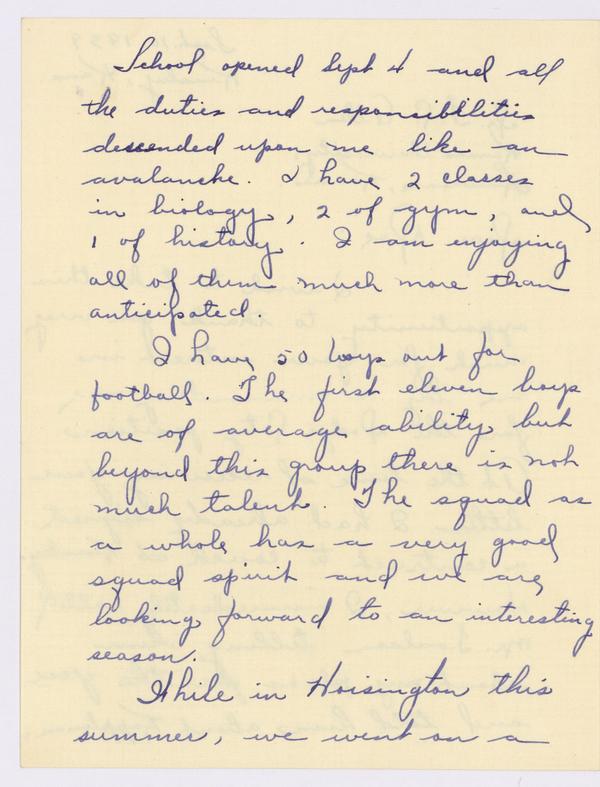 School opened Sept 4 and all
the duties and responsibilities
descended upon me like an
avalanche. I have 2 classes
in biology, 2 of gym, and
1 of history. I am enjoying
all of them much more than
anticipated.
I have 50 boys out for
football. The first eleven boys
are of average ability but
beyond this group there is not
much talent. The squad as
a whole has a very good
squad spirit and we are
looking forward to an interesting
season.
While in Hoisington this
summer, we went on a